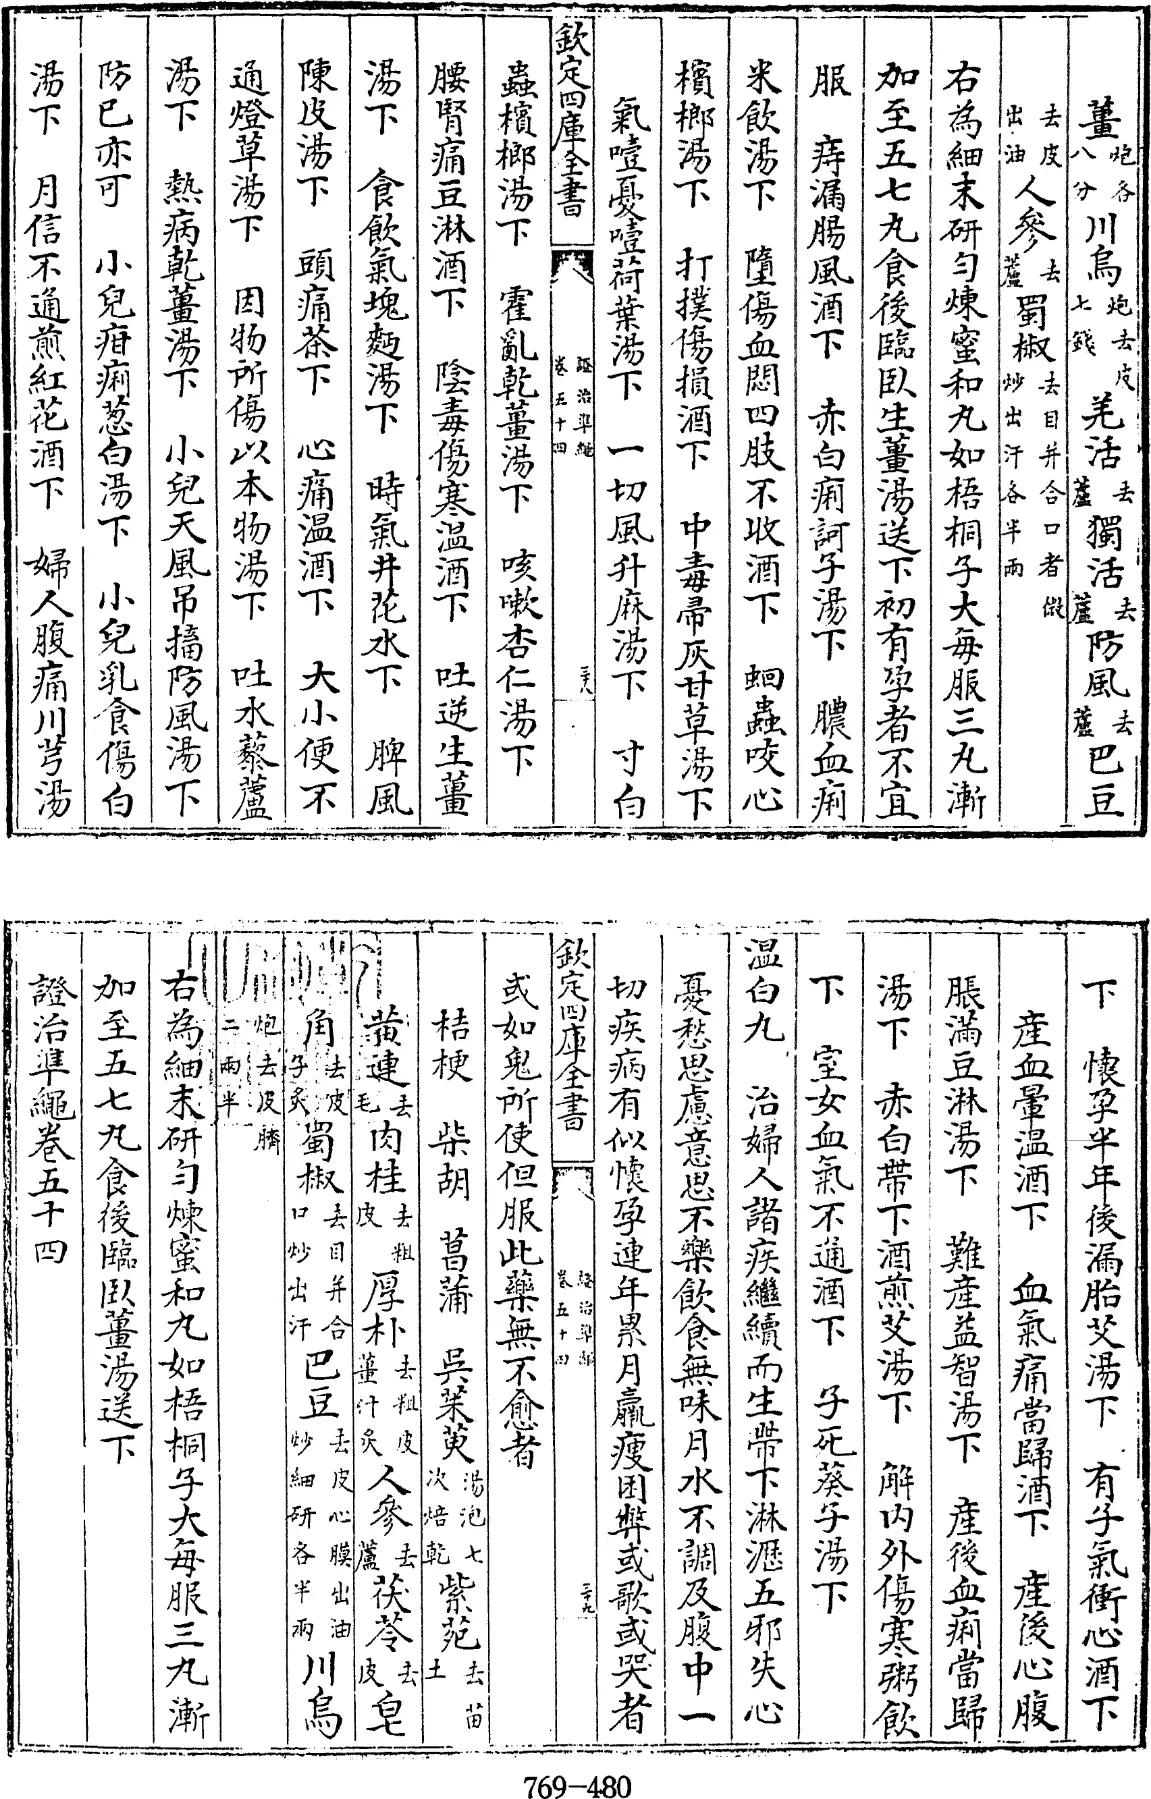 薑炮各八分川烏炮去皮七錢羌活去蘆獨活去蘆防風去蘆巴豆
去皮出油人參去蘆蜀椒去目并合口者微炒出汗各半兩
右為細末研勻煉蜜和丸如梧桐子大每服三丸漸
加至五七丸食後臨臥生薑湯送下初有孕者不宜
服　痔漏腸風酒下　赤白痢訶子湯下　膿血痢
米飲湯下　墮傷血悶四肢不收酒下　蛔蟲咬心
檳榔湯下　打撲傷損酒下　中毒帚灰甘草湯下
氣噎憂噎荷葉湯下　一切風升麻湯下　寸白
欽定四庫全書　證治準繩卷五十四　三十八
蟲檳榔湯下　霍亂乾薑湯下　咳嗽杏仁湯下
腰腎痛豆淋酒下　陰毒傷寒温酒下　吐逆生薑
湯下　食飲氣塊麪湯下　時氣井花水下　脾風
陳皮湯下　頭痛茶下　心痛温酒下　大小便不
通燈草湯下　因物所傷以本物湯下　吐水藜蘆
湯下　熱病乾薑湯下　小兒天風吊搐防風湯下
防已亦可　小兒疳痢葱白湯下　小兒乳食傷白
湯下　月信不通煎紅花酒下　婦人腹痛川芎湯
下　懷孕半年後漏胎艾湯下　有子氣衝心酒下
産血暈温酒下　血氣痛當歸酒下　産後心腹
脹滿豆淋湯下　難産益智湯下　産後血痢當歸
湯下　赤白帶下酒煎艾湯下　解内外傷寒粥飲
下　室女血氣不通酒下　子死葵子湯下
温白丸　治婦人諸疾繼續而生帶下淋瀝五邪失心
憂愁思慮意思不樂飲食無味月水不調及腹中一
切疾病有似懷孕連年累月羸瘦困弊或歌或哭者
欽定四庫全書　證治準繩卷五十四　三十九
或如鬼所使但服此藥無不愈者
桔梗　柴胡　菖蒲　吳茱萸湯泡七次焙乾紫菀去苗土
黄連去毛肉桂去粗皮厚朴去粗皮薑汁炙人參去蘆茯苓去皮皂
角去皮子炙蜀椒去目并合口炒出汗巴豆去皮心膜出油炒細研各半兩川烏
炮去皮臍二兩半
右為細末研勻煉蜜和丸如梧桐子大每服三丸漸
加至五七丸食後臨臥薑湯送下
證治準繩卷五十四
769-480